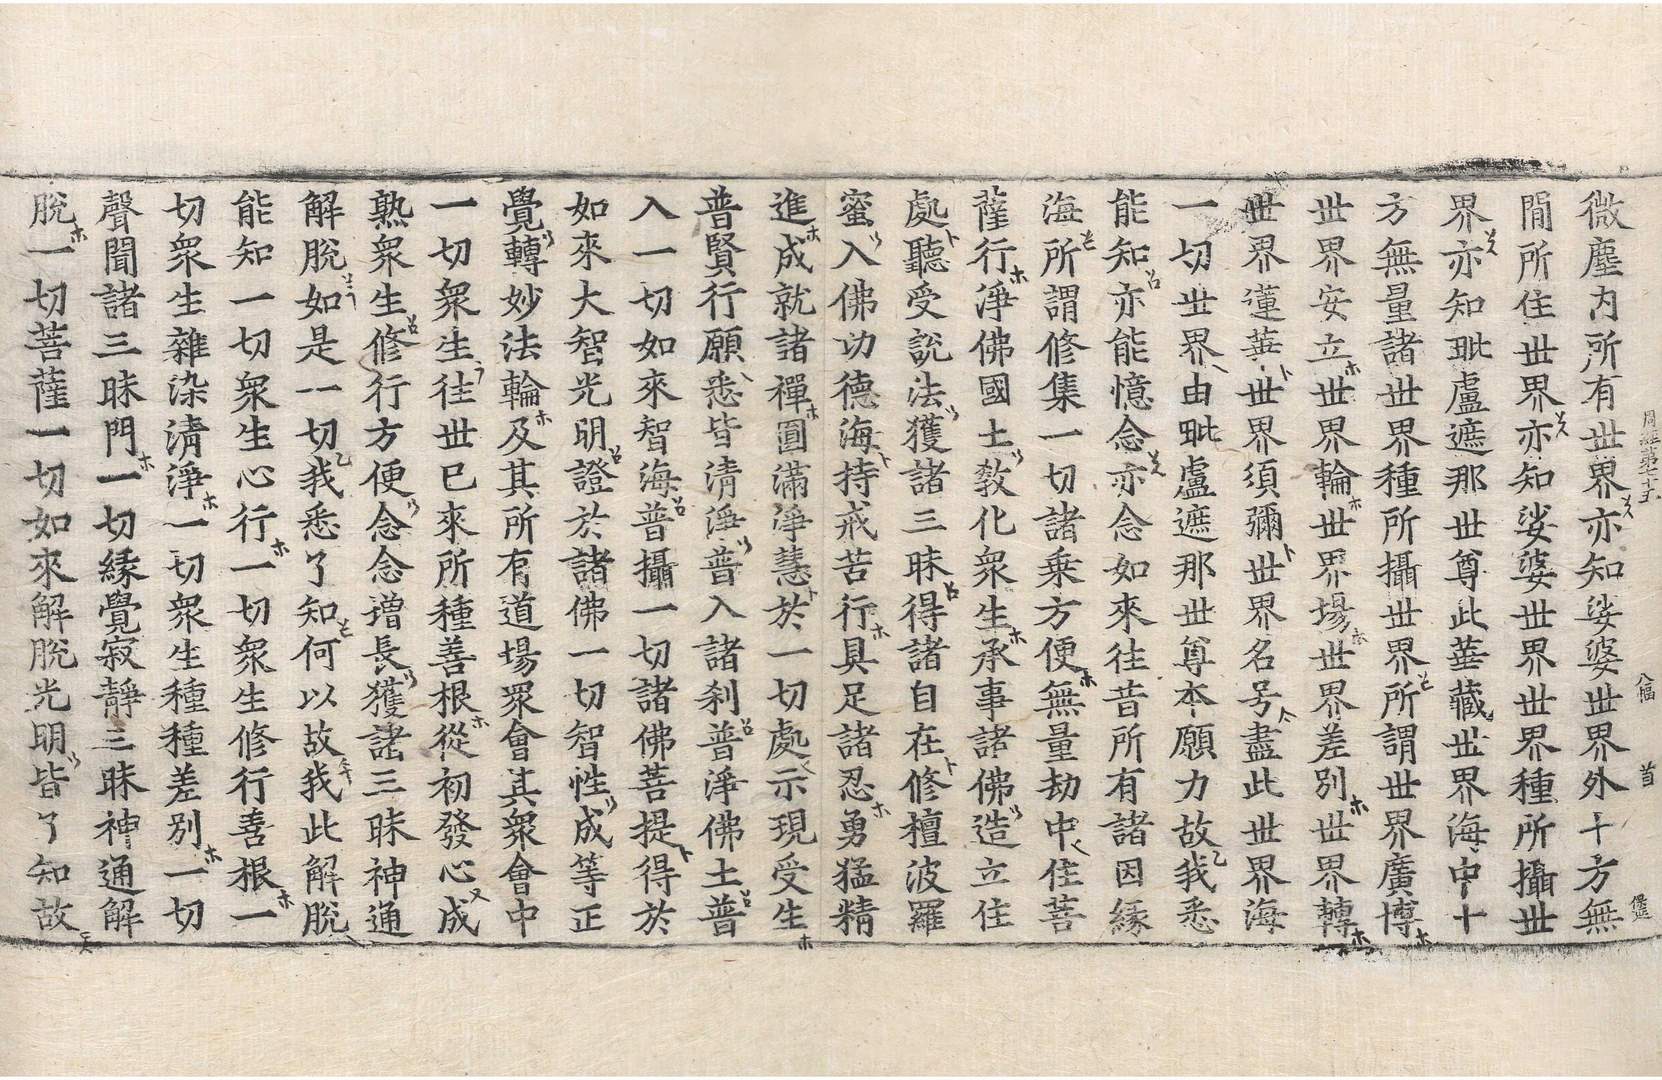 微塵内所有世界亦知娑婆世界外十方無
閒所住世界亦知娑婆世界世界種所攝世
界亦知毗盧遮那世尊此華藏世界海中十
方無量諸世界種所攝世界所謂世界廣博
世界安立世界輪世界場世界差別世界轉
世界蓮華世界須彌世界名号盡此世界海
一切世界由毗盧遮那世尊本願力故我悉
能知亦能憶念亦念如來往昔所有諸因緣
海所謂修集一切諸乘方便無量劫中住菩
薩行淨佛國土教化衆生承事諸佛造立住
處聽受說法獲諸三昧得諸自在修檀波羅
蜜入佛功德海持戒苦行具足諸忍勇猛精
進成就諸禪圓滿淨慧於一切處示現受生
普賢行願悉皆清淨普入諸刹普淨佛土普
入一切如來智海普攝一切諸佛菩提得於
如來大智光明證於諸佛一切智性成等正
覺轉妙法輪及其所有道場衆會其衆會中
一切衆生往世已來所種善根從初發心成
熟衆生修行方便念念增長獲諸三昧神通
解脫如是一切我悉了知何以故我此解脫
能知一切衆生心行一切衆生修行善根一
切衆生雜染清淨一切衆生種種差別一切
聲聞諸三昧門一切緣覺寂靜三昧神通解
脫一切菩薩一切如來解脫光明皆了知故